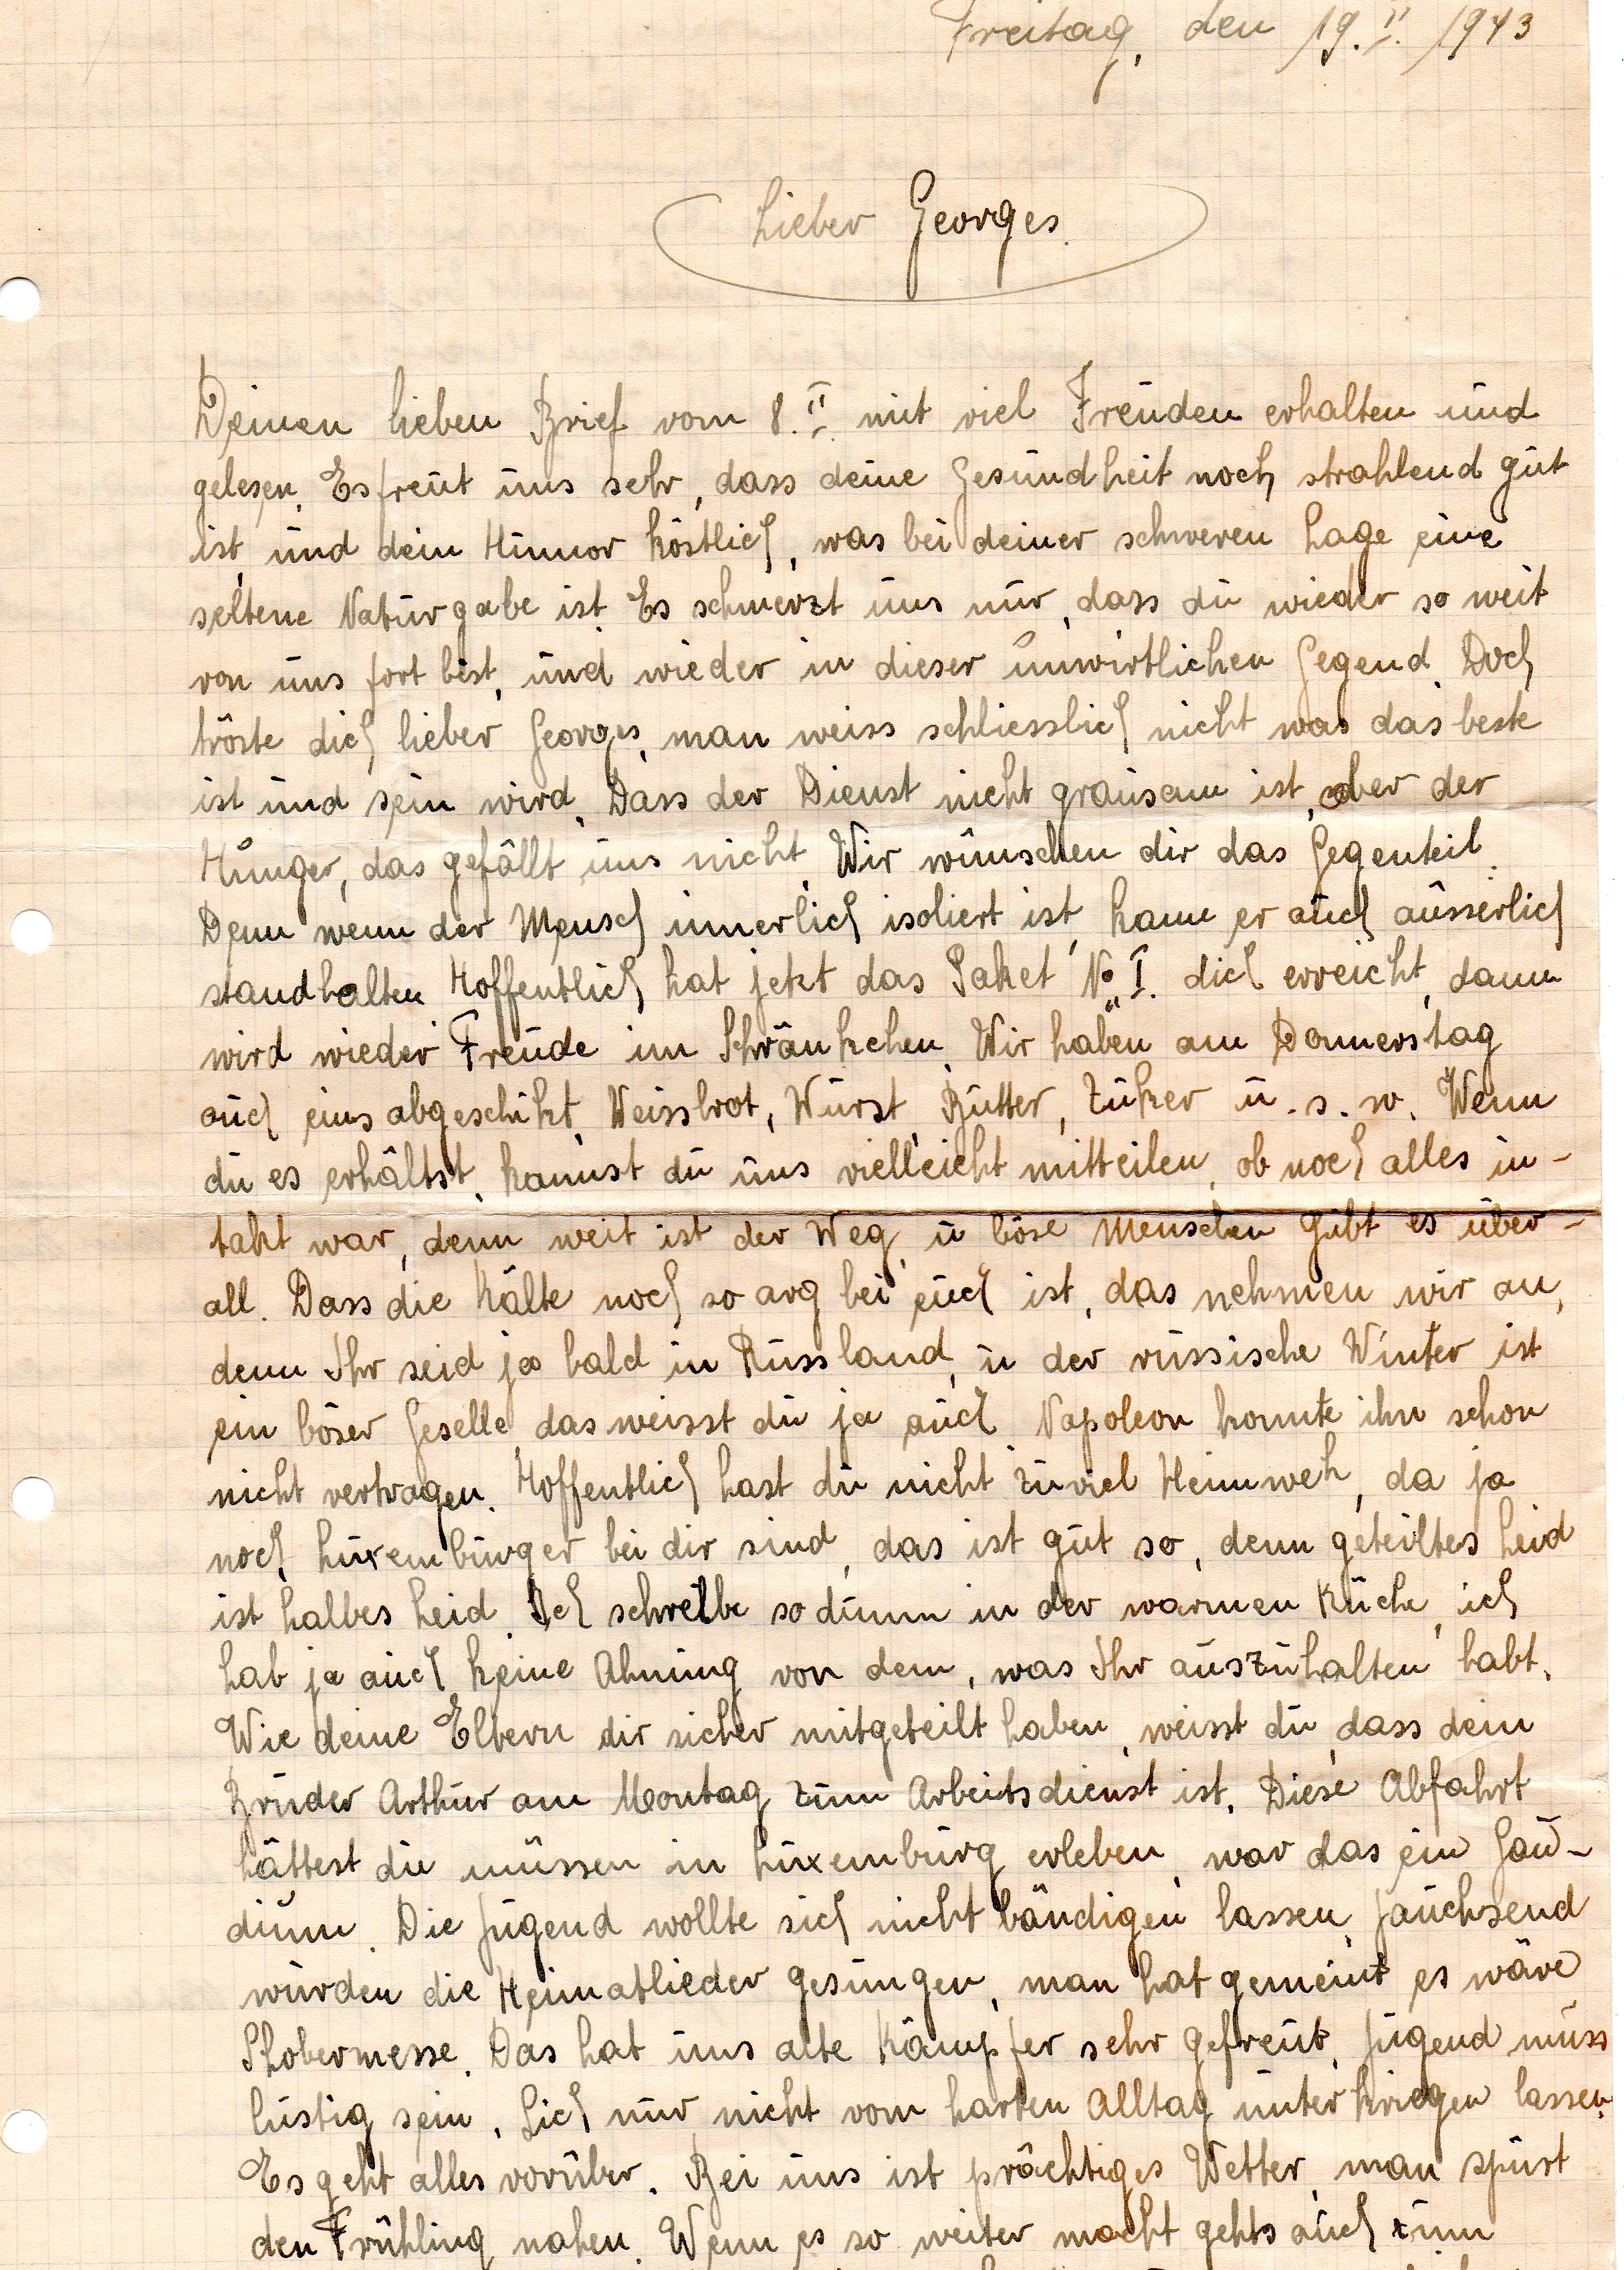 Freitag, den 19. II. 1943
Lieber Georges.
Deinen lieben Brief vom 8. II. mit viel Freuden erhalten und
gelesen. Es freut uns sehr, dass deine Gesundheit noch strahlend gut
ist, und dein Humor köstlich, was bei deiner schweren Lage eine
seltene Naturgabe ist. Es schmerzt uns nur, dass du wieder so weit
von uns fort bist, und wieder in dieser unwirtlichen Gegend. Doch
tröste dich lieber Georges, man weiss schliesslich nicht was das beste
ist und sein wird. Dass der Dienst nicht grausam ist, aber der
Hunger, das gefällt uns nicht. Wir wünschen dir das Gegenteil.
Denn wenn der Mensch innerlich isoliert ist, kann er auch äusserlich
standhalten. Hoffentlich hat jetzt das Paket No I. dich erreicht, dann
wird wieder Freude im Schränkchen. Wir haben am Donnerstag
auch eins abgeschikt, Weissbrot, Wurst, Butter, Zuker u. s. w. Wenn
du es erhältst, kannst du uns vielleicht mitteilen, ob noch alles in-
takt war, denn weit ist der Weg, u böse Menschen gibt es über-
all. Dass die Kälte noch so arg bei euch ist, das nehmen wir an,
denn Ihr seid ja bald in Russland, u der russische Winter ist
ein böser Geselle, das weisst du ja auch. Napoleon konnte ihn schon
nicht vertragen. Hoffentlich hast du nicht zuviel Heimweh, da ja
noch Luxemburger bei dir sind, das ist gut so, denn geteiltes Leid
ist halbes Leid. Ich schreibe so dumm in der warmen Küche, ich
hab ja auch keine Ahnung von dem, was Ihr auszuhalten habt.
Wie deine Eltern dir sicher mitgeteilt haben, weisst du, dass dein
Bruder Arthur am Montag zum Arbeitsdienst ist. Diese Abfahrt
hättest du müssen in Luxemburg erleben, war das ein Gau-
dium. Die Jugend wollte sich nicht bändigen lassen, jauchsend
wurden die Heimatlieder gesungen, man hat gemeint es wäre
Schobermesse. Das hat uns alte Kämpfer sehr gefreut, Jugend muss
lustig sein. Sich nur nicht vom harten Alltag unterkriegen lassen.
Es geht alles vorüber. Bei uns ist prächtiges Wetter, man spürt
den Frühling nahen. Wenn es so weiter macht gehts auch zum